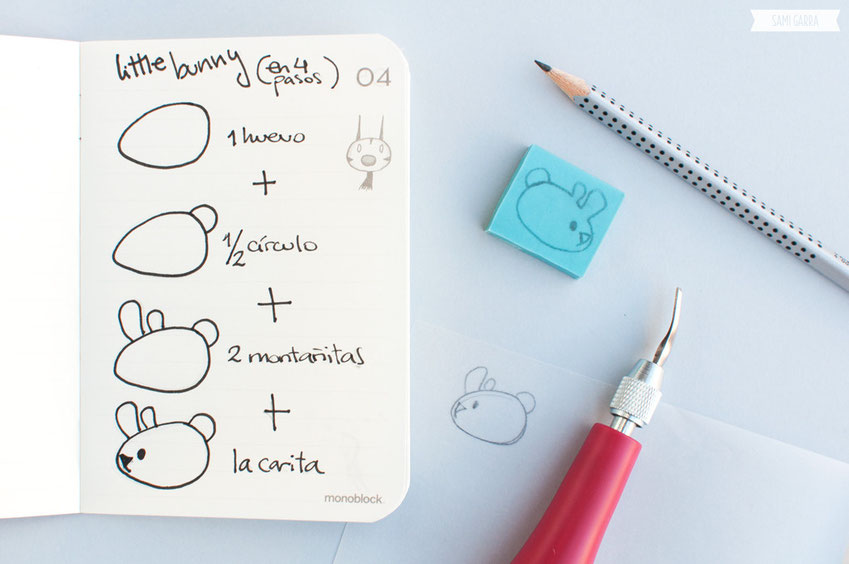 SAMI GARRA
little bunny (en 4 pasos)
04
1 huevo
+
1/2 círculo
+
2 montañitas
+
la carita
monoblock